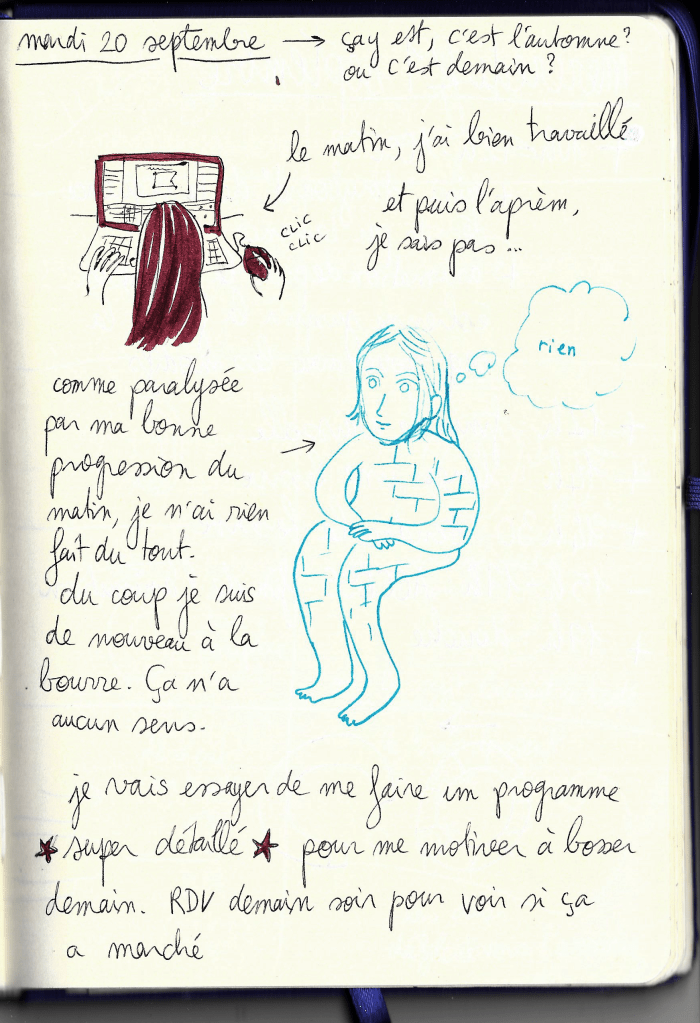 mardi 20 septembre → çay est, c'est l'automne?
ou c'est demain?
le matin, j'ai bien travaillé
clic
clic
et puis l'aprèm,
je sais pas...
rien
comme paralysée
par ma bonne
progression du
matin, je n'ai rien
fait du tout.
du coup je suis
de nouveau à la
bourre. Ça n'a
aucun sens.
je vais essayer de me faire un programme
★ super détaillé ★ pour me motiver à bosser
demain. RDV demain soir pour voir si ça
a marché